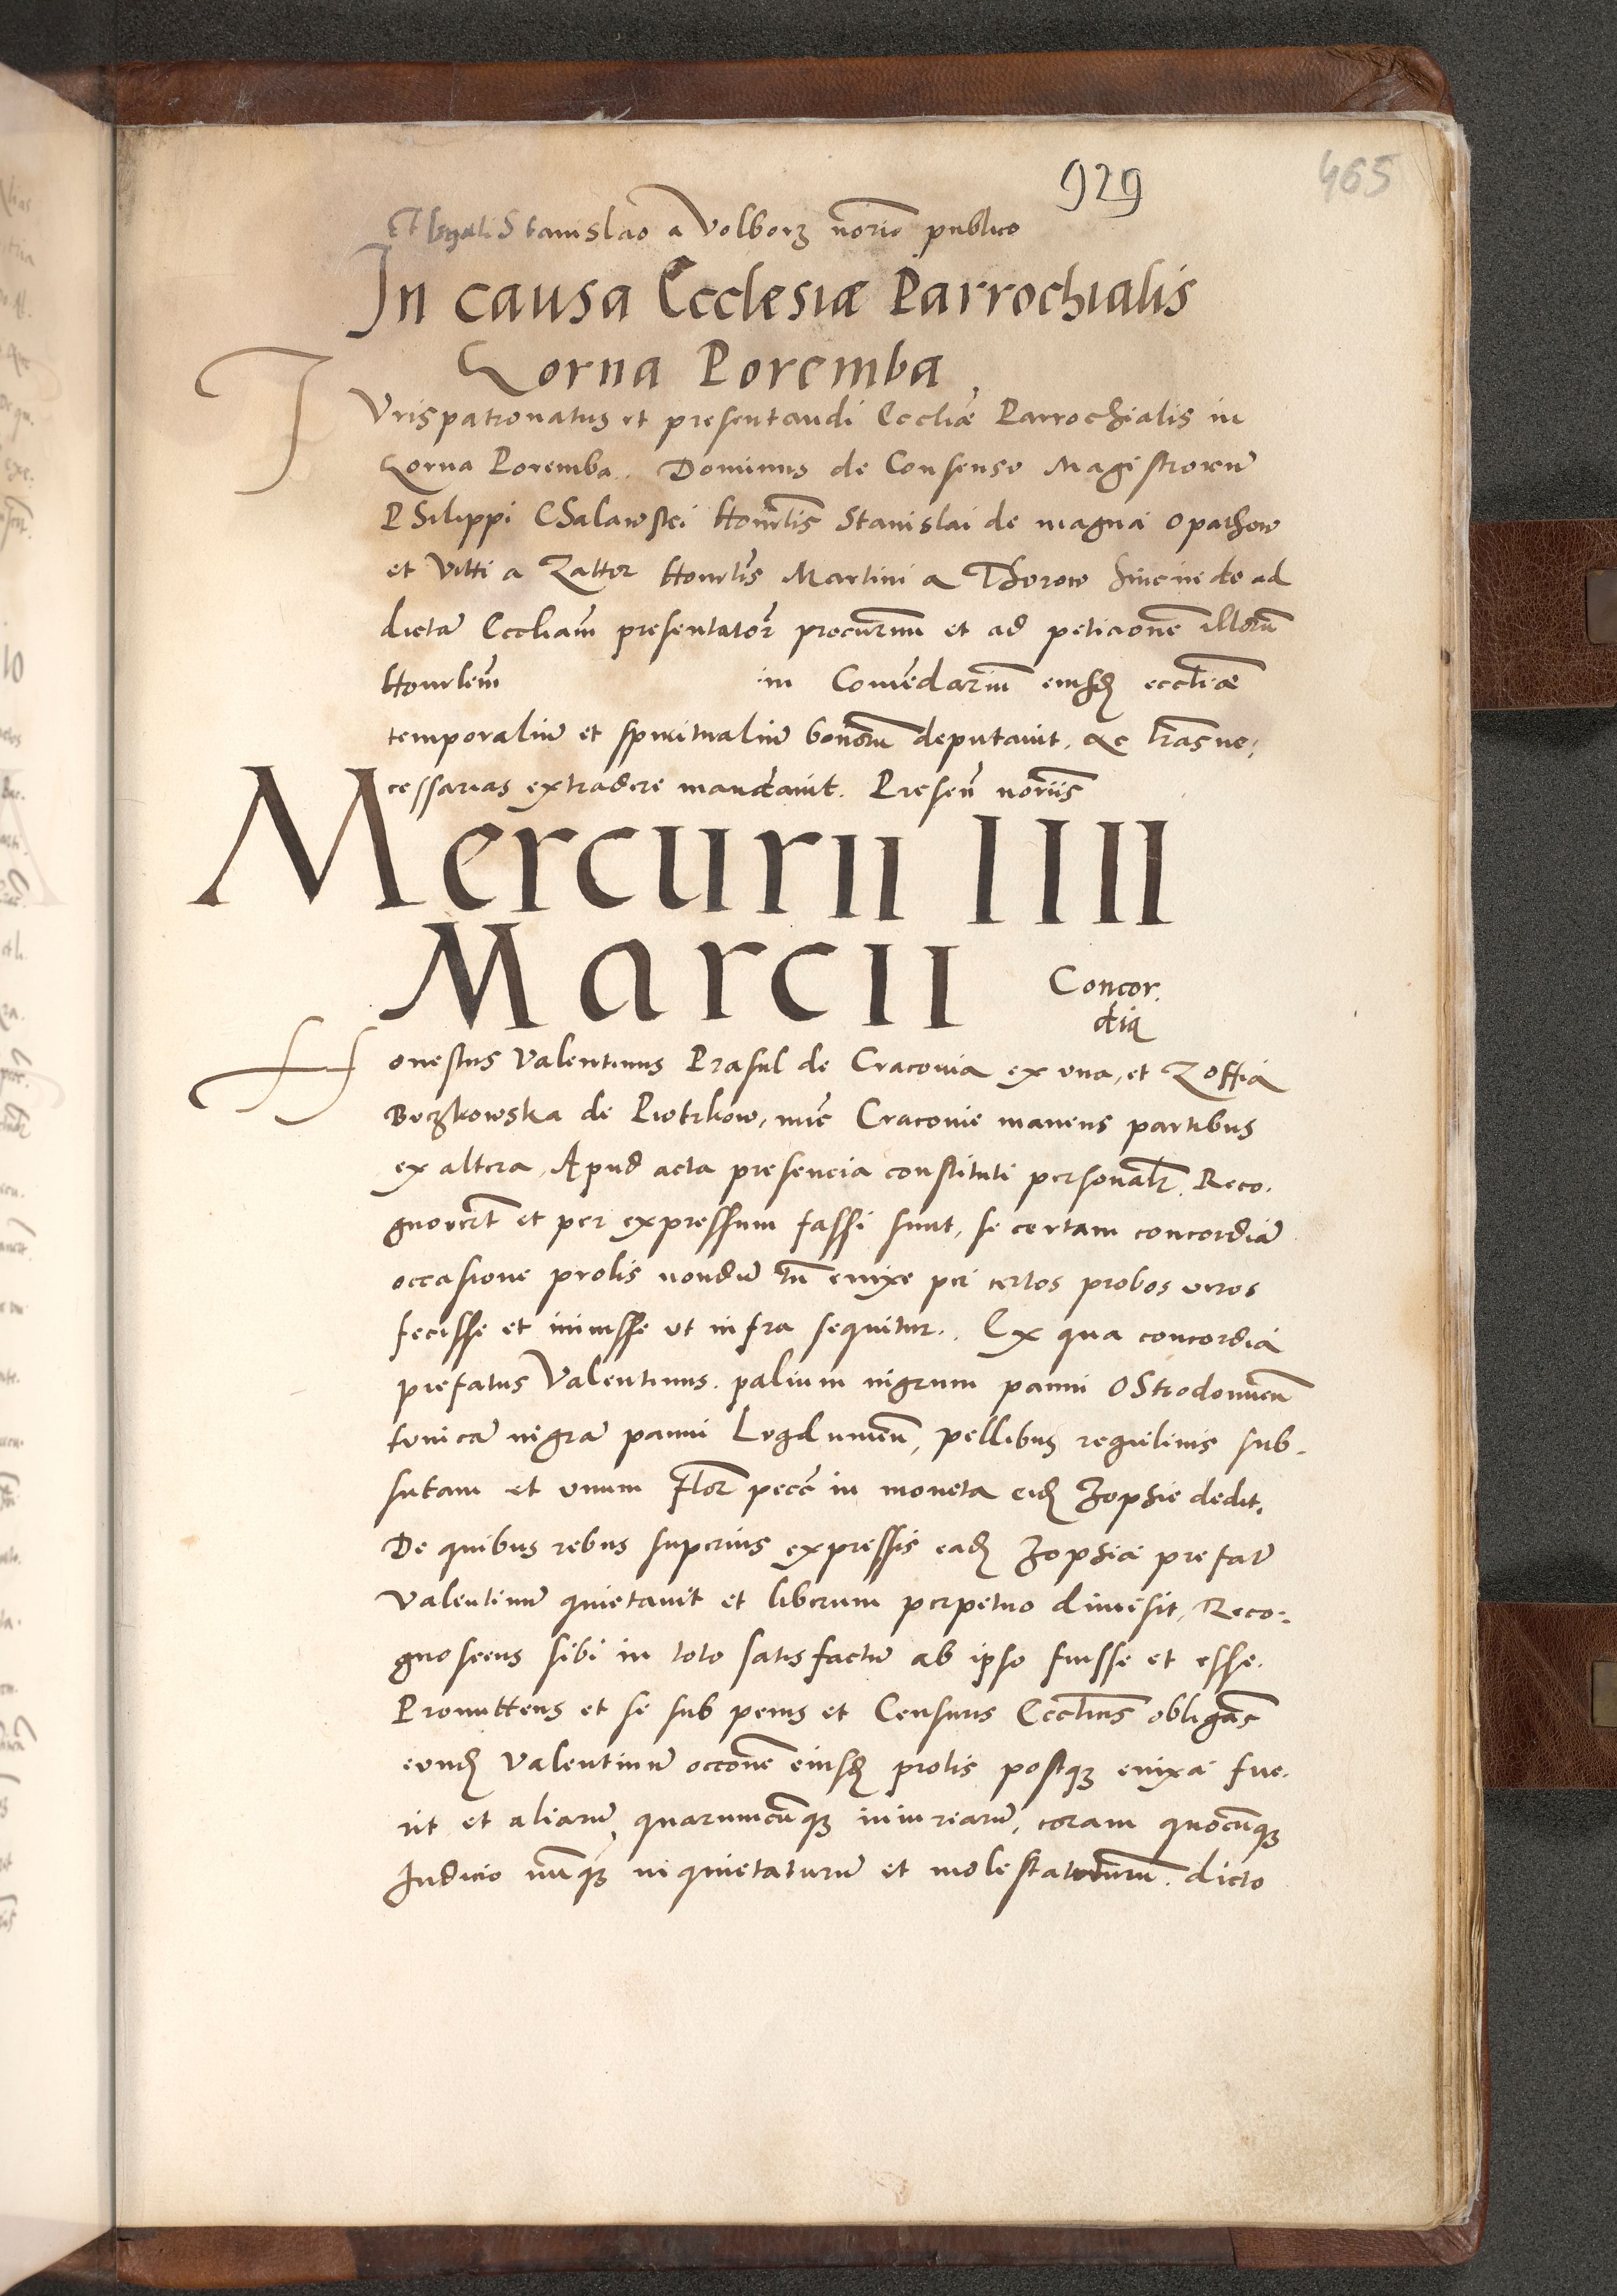 929
465
Et legali Stanislao a Volborz norio publico
In causa Ecclesiæ Parrochialis
Gorna Poremba
Iurispatronatus et presentandi Eccliæ Parrochialis in
Gorna Poremba. Dominus de Consensu Magistrorum
Philippi Chalawski Honorlis Stanislai de magna Opathow
et Vitti a Zatter Honorlis Martini a Thorow ad
dictam Eccliam presentator procurnm et ad peticionem illorum
Honorlem in Comendarium eiusdem eccliæ
temporalium et spiritualium bonorum deputavit, ac lras ne,
cessarias extradere mandavit. Presen noriis
Mercurii IIII
Marcii
Concor,
dia
Honestus Valentinus Prasul de Cracovia ex una, et Zoffia
Beczkowska de Piotrkow, nunc Cracovie manens partibus
ex altera, Apud acta presencia constituti personalr. Reco,
gnovert et per expressum fassi sunt, se certam concordiam
occasione prolis nondum tn enixe per certos probos viros
fecisse et iniisse ut infra sequitur. Ex qua concordia
prefatus Valentinus palium nigrum panni Ostrodonien
tunicam nigram panni Lugdunien, pellibus sub,
sutam et unum flor pecc in moneta eid Zophie dedit,
De quibus rebus superius expressis ead Zophia prefatum
Valentinum quietavit et liberum perpetuo dimisit, Reco,
gnoscens sibi in toto satisfactum ab ipso fuisse et esse.
Promittens et se sub penis et Censuris Ecclicis obligans
eund Valentinum occone eiusd prolis postq enixa fue,
rit et aliarum quarumcunq iniuriarum, coram quocunq
Iudicio nunq inquietaturum et molestaturum. dicto